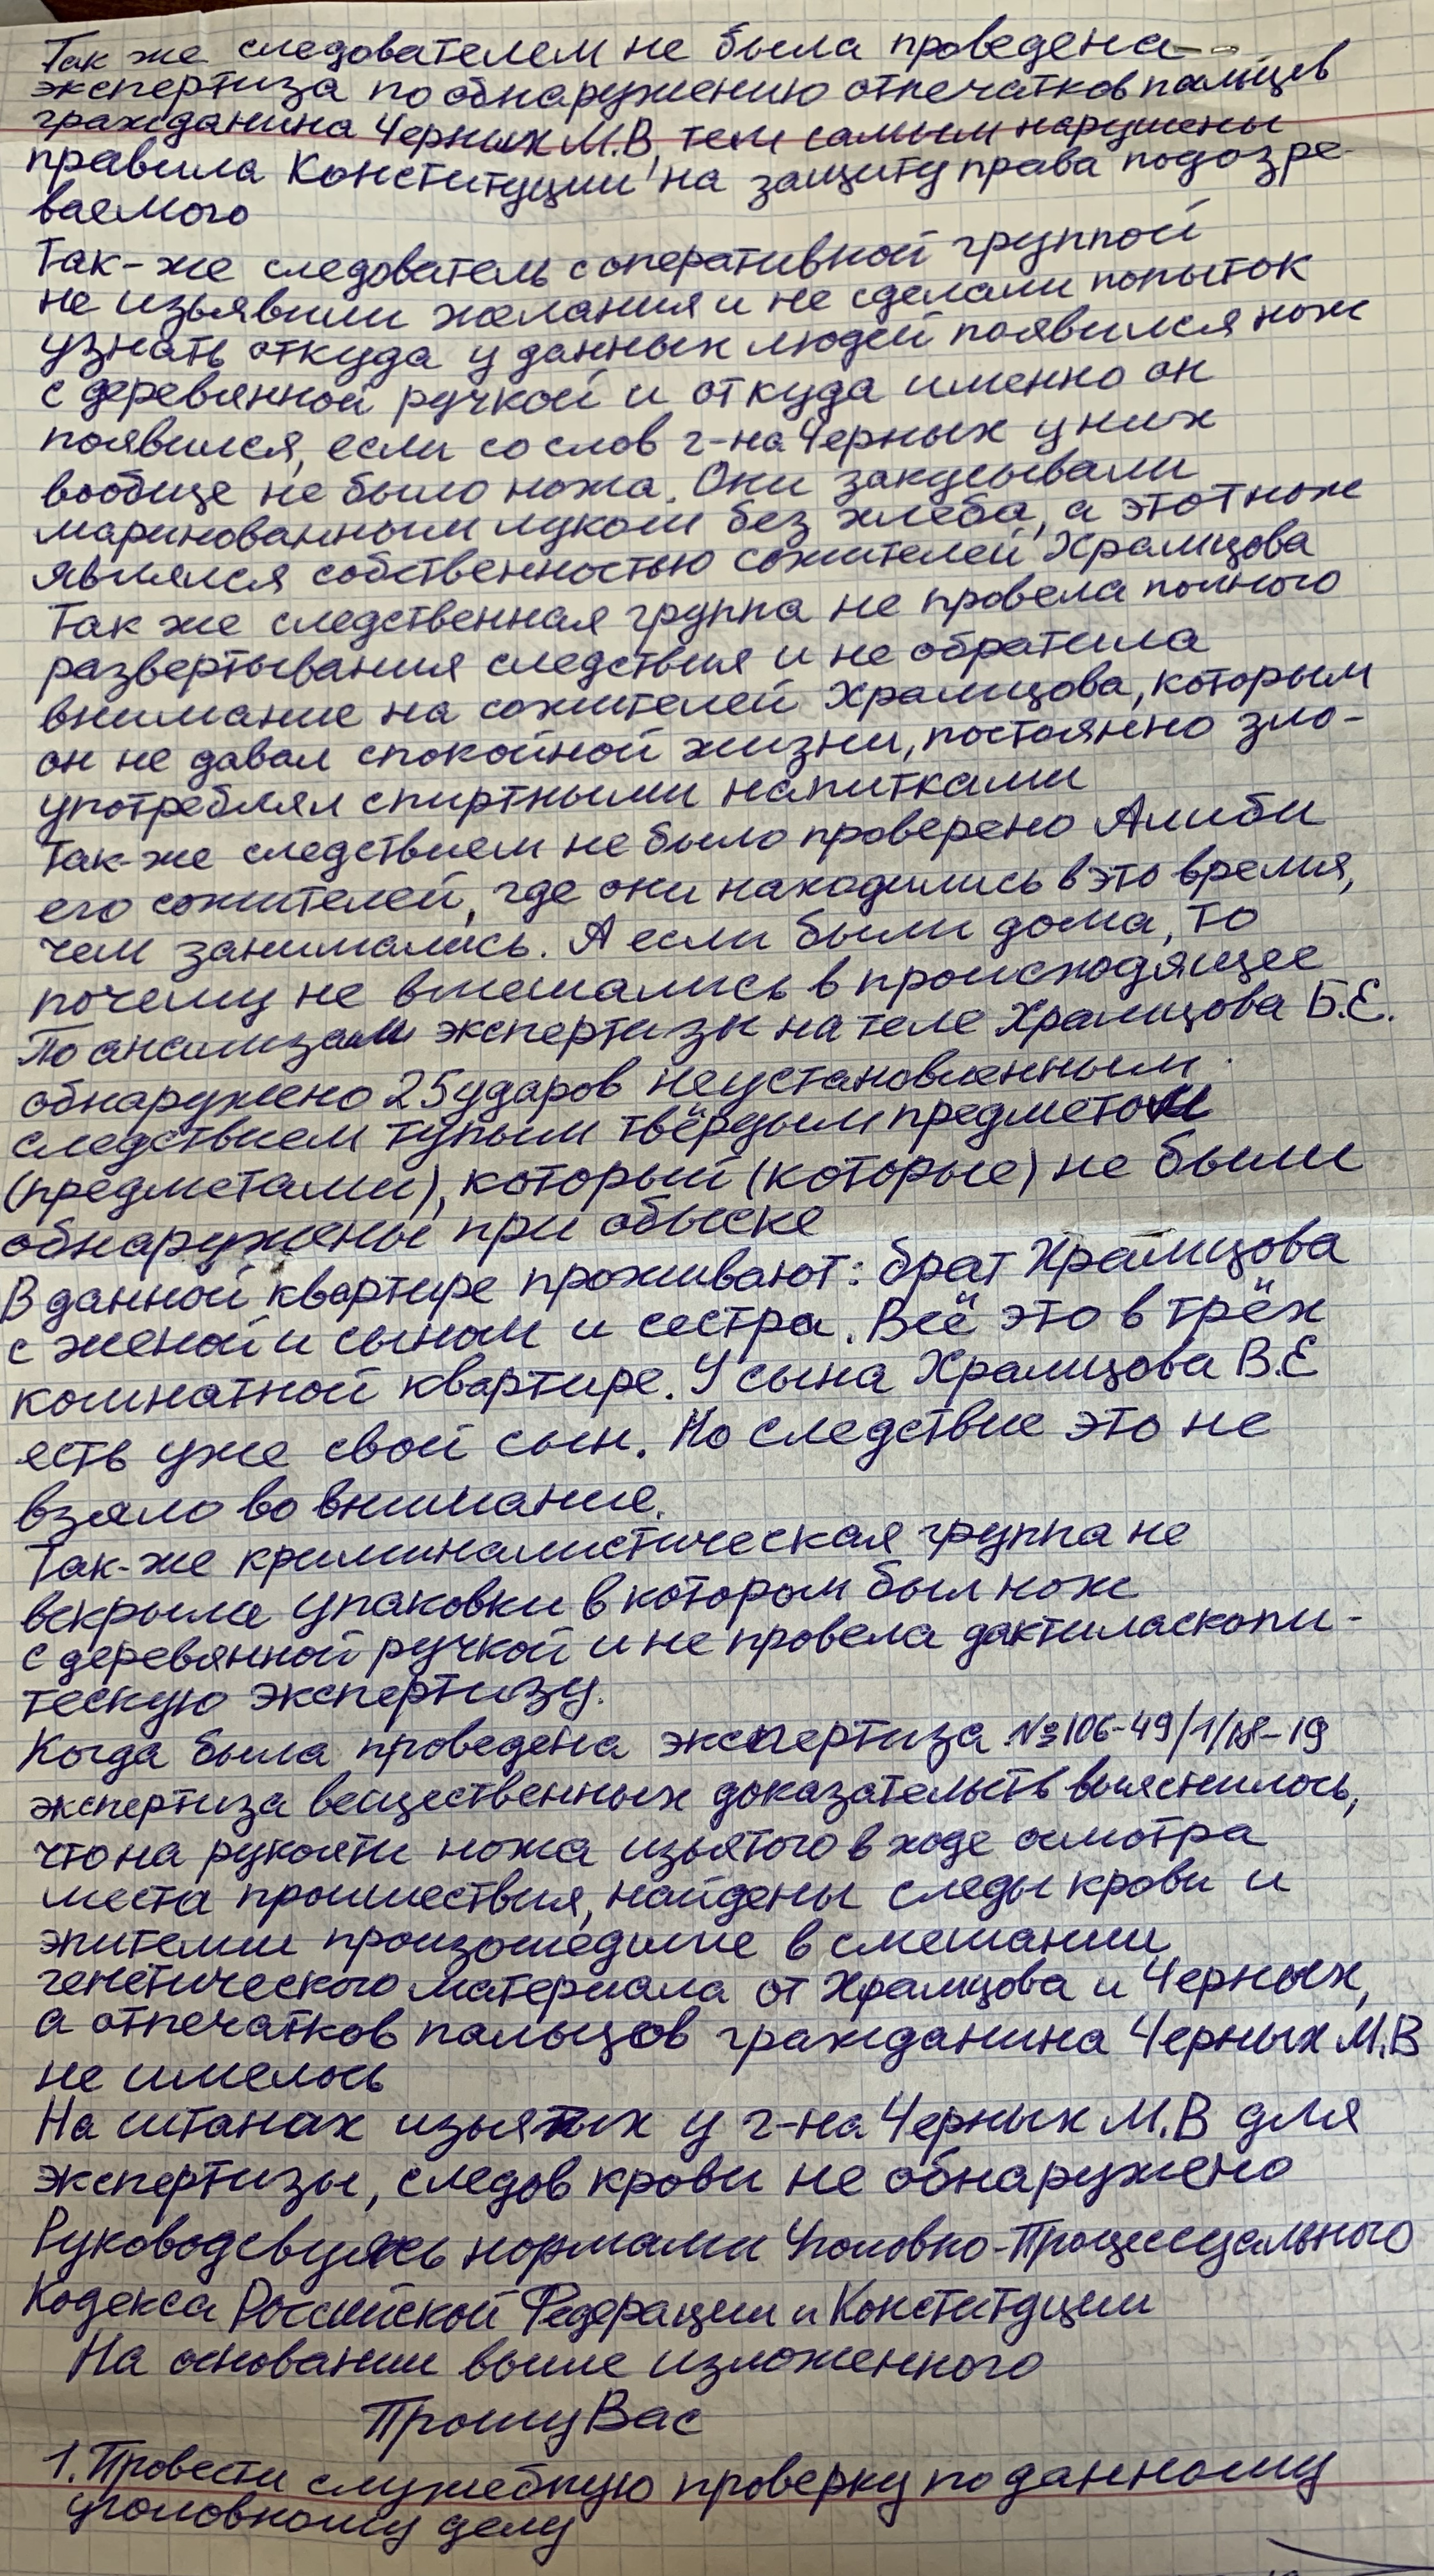 Так же следователем не была проведена
экспертиза по обнаружению отпечатков пальцев
гражданина Черных М.В, тем самым нарушены
правила Конституции на защиту права подозре-
ваемого
Так-же следователь с оперативной группой
не изъявили желания и не сделали попыток
узнать откуда у данных людей появился нож
с деревянной ручкой и откуда именно он
появился, если со слов г-на Черных у них
вообще не было ножа. Они закусывали
маринованным луком без хлеба, а этот нож
являлся собственностью сожителей Храмцова
Так же следственная группа не провела полного
развертывания следствия и не обратила
внимание на сожителей Храмцова, которым
он не давал спокойной жизни, постоянно зло-
употреблял спиртными напитками
Так-же следствием не было проверено Алиби
его сожителей, где они находились в это время,
чем занимались. А если были дома, то
почему не вмешались в происходящее
По анализам экспертизы на теле Храмцова Б.Е.
обнаружено 25 ударов неустановленным
следствием тупым твёрдым предметом
(предметами), который (которые) не были
обнаружены при обыске
В данной квартире проживают: брат Храмцова
с женой и сыном и сестра. Всё это в трёх
комнатной квартире. У сына Храмцова В.Е
есть уже свой сын. Но следствие это не
взяло во внимание.
Так-же криминалистическая группа не
вскрыла упаковки в котором был нож
с деревянной ручкой и не провела дактиласкопи-
тескую экспертизу.
Когда была проведена экспертиза №106-49/1/18-19
экспертиза вещественных доказательств выяснилось,
что на рукояти ножа изьятого в ходе осмотра
места проишествия, найдены следы крови и
эпителии произошедшие в смешании
генетического материала от Храмцова и Черных,
а отпечатков пальцов гражданина Черных М.В
не имелось
На штанах изьятых у г-на Черных М.В для
экспертизы, следов крови не обнаружено
Руководсвуясь нормами Уголовно-Процессуального
Кодекса Российской Федерации и Конституции
На основании выше изложенного
Прошу Вас
1. Провести служебную проверку по данному
уголовному делу